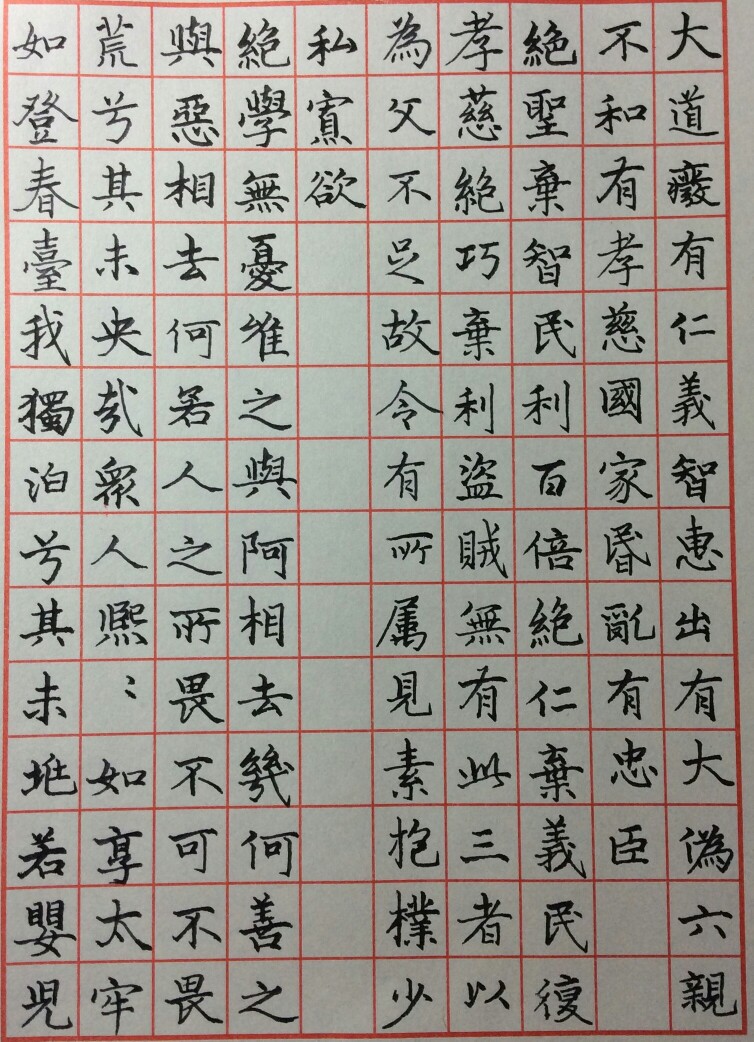 大道癈有仁義智惠出有大偽六親
不和有孝慈國家昬亂有忠臣
絕聖棄智民利百倍絕仁棄義民復
孝慈絕巧棄利盜賊無有此三者以
為父不足故令有所属見素抱樸少
私寡欲
絕學無憂唯之與阿相去幾何善之
與惡相去何若人之所畏不可不畏
荒兮其未央哉衆人熙〻如享太牢
如登春臺我獨泊兮其未兆若嬰兒